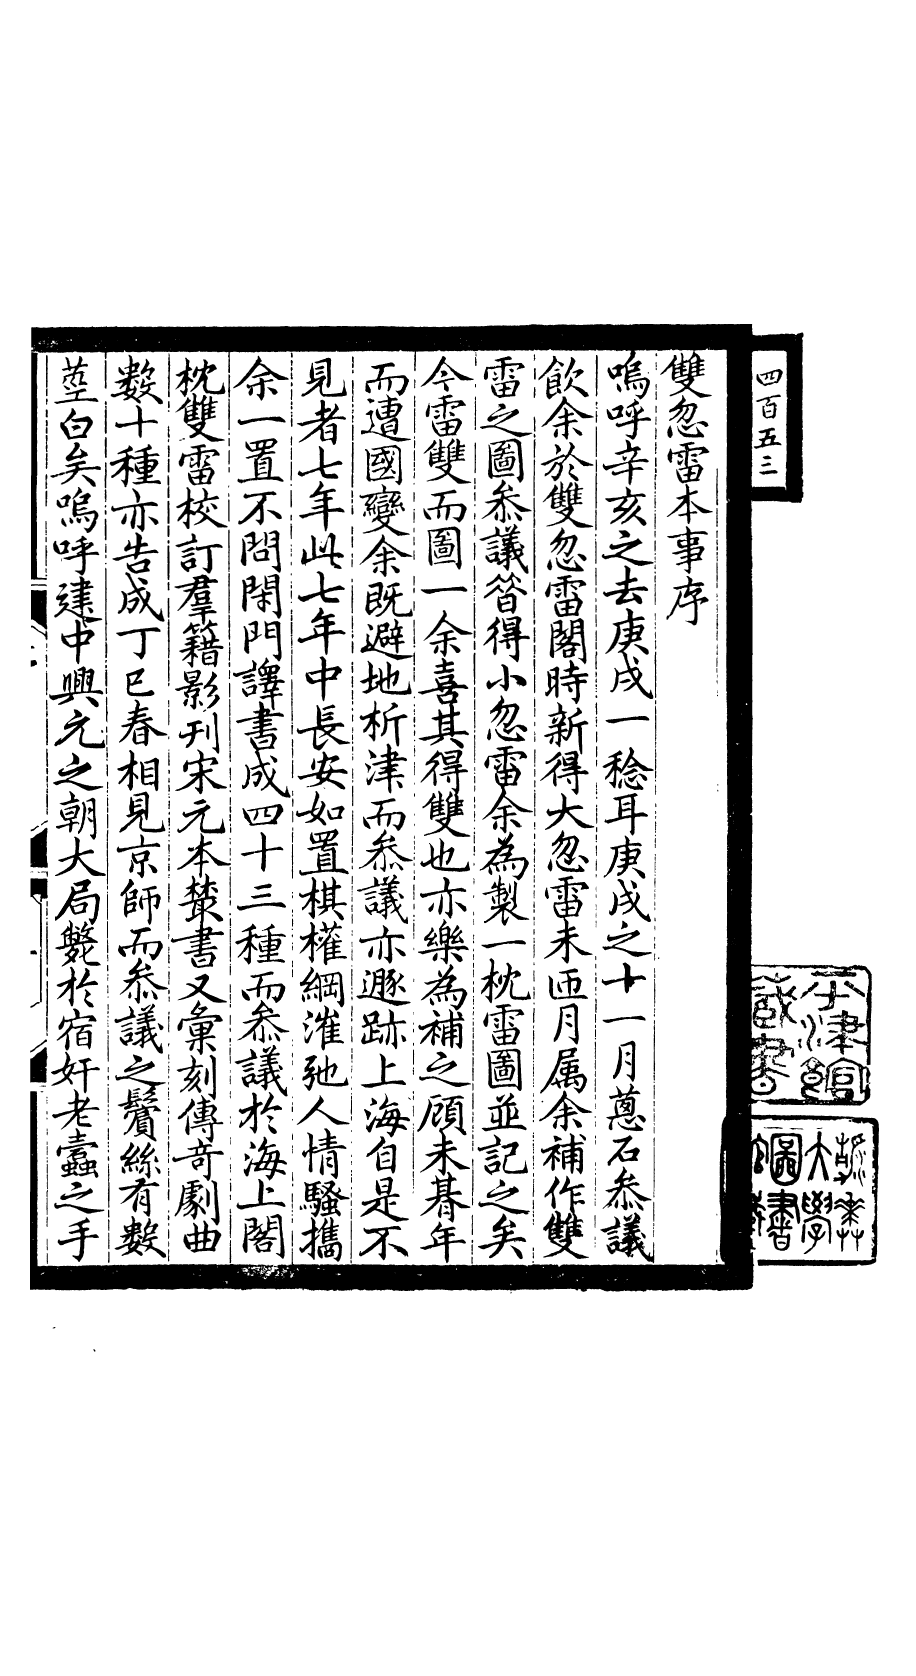 四百五三
雙忽雷本事序
嗚呼辛亥之去庚戌一稔耳庚戌之十一月蔥石叅議
飲余於雙忽雷閣時新得大忽雷未匝月属余補作雙
雷之圖叅議曾得小忽雷余為製一枕雷圖並記之矣
今雷雙而圖一余喜其得雙也亦樂為補之顧未朞年
而遭國變余既避地析津而叅議亦遯跡上海自是不
見者七年此七年中長安如置棋權綱漼弛人情騷攜
余一置不問閑門譯書成四十三種而叅議於海上閣
枕雙雷校訂羣籍影刋宋元本叢書又彙刻傳奇劇曲
數十種亦告成丁巳春相見京師而叅議之鬢絲有數
莖白矣嗚呼建中興元之朝大局斃於宿奸老蠧之手
大學
圖書